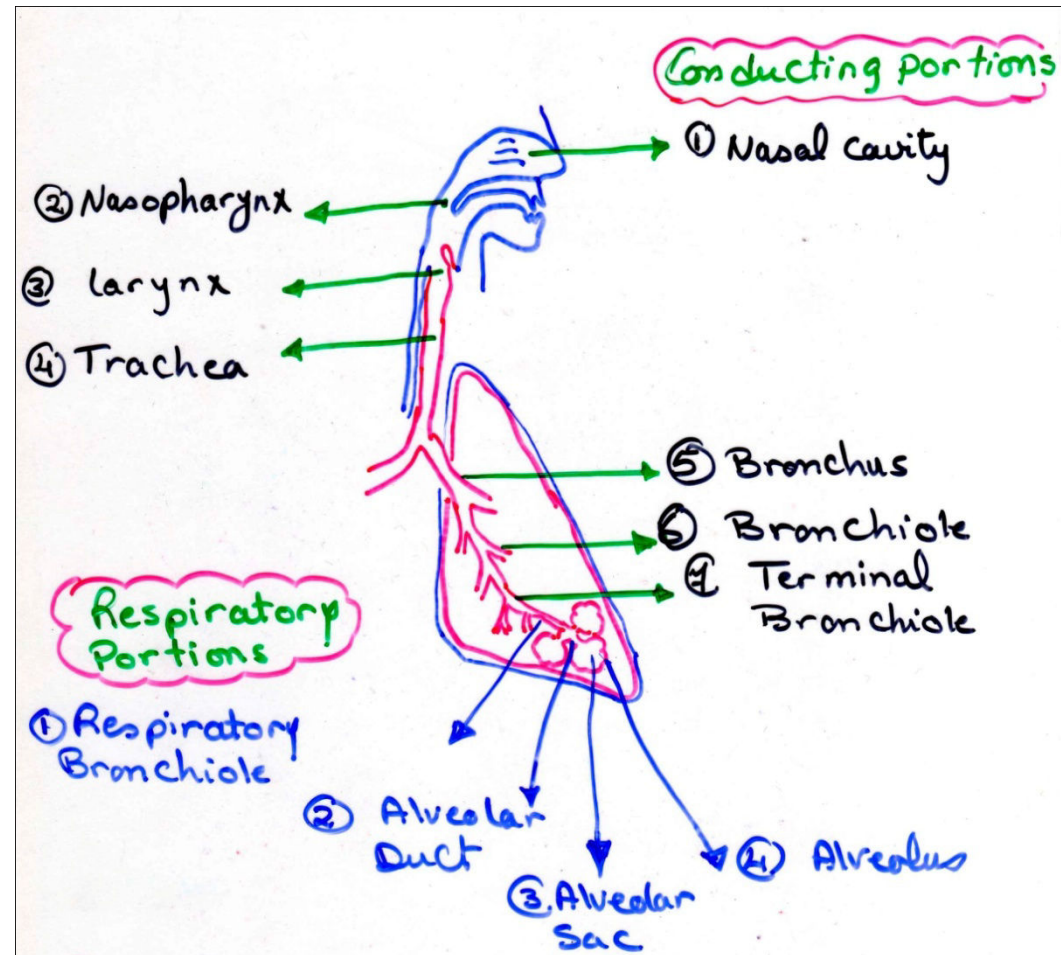 Conducting portions
① Nasal cavity
② Nasopharynx
③ larynx
④ Trachea
⑤ Bronchus
⑥ Bronchiole
⑦ Terminal
Bronchiole
Respiratory
Portions
① Respiratory
Bronchiole
② Alveolar
Duct
③ Alveolar
Sac
④ Alveolus